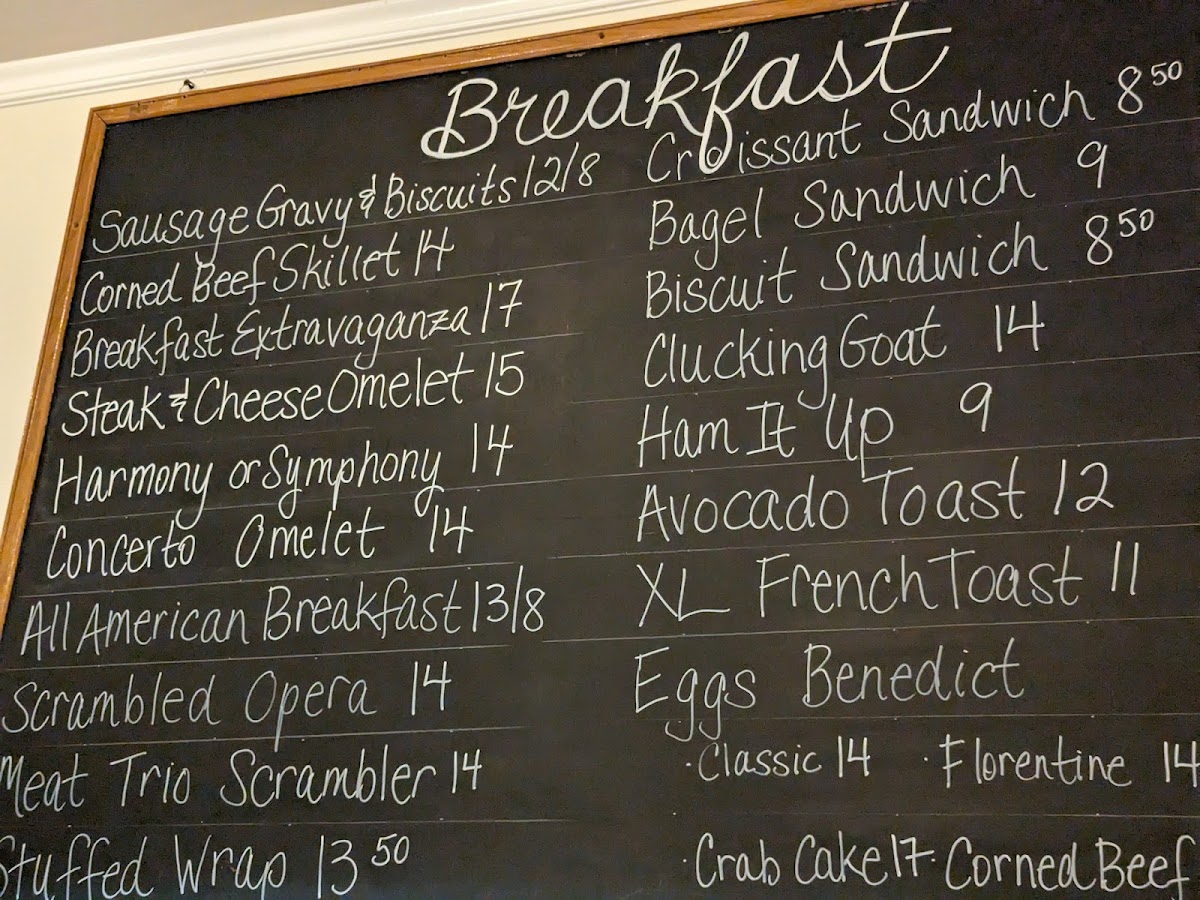 Breakfast
Sausage Gravy & Biscuits 12/8
Corned Beef Skillet 14
Breakfast Extravaganza 17
Steak & Cheese Omelet 15
Harmony or Symphony 14
Concerto Omelet 14
All American Breakfast 13/8
Scrambled Opera 14
Meat Trio Scrambler 14
Stuffed Wrap 13 50
Croissant Sandwich 8 50
Bagel Sandwich 9
Biscuit Sandwich 8 50
Clucking Goat 14
Ham It Up 9
Avocado Toast 12
XL French Toast 11
Eggs Benedict
· Classic 14 · Florentine 14
· Crab Cake 17 · Corned Beef